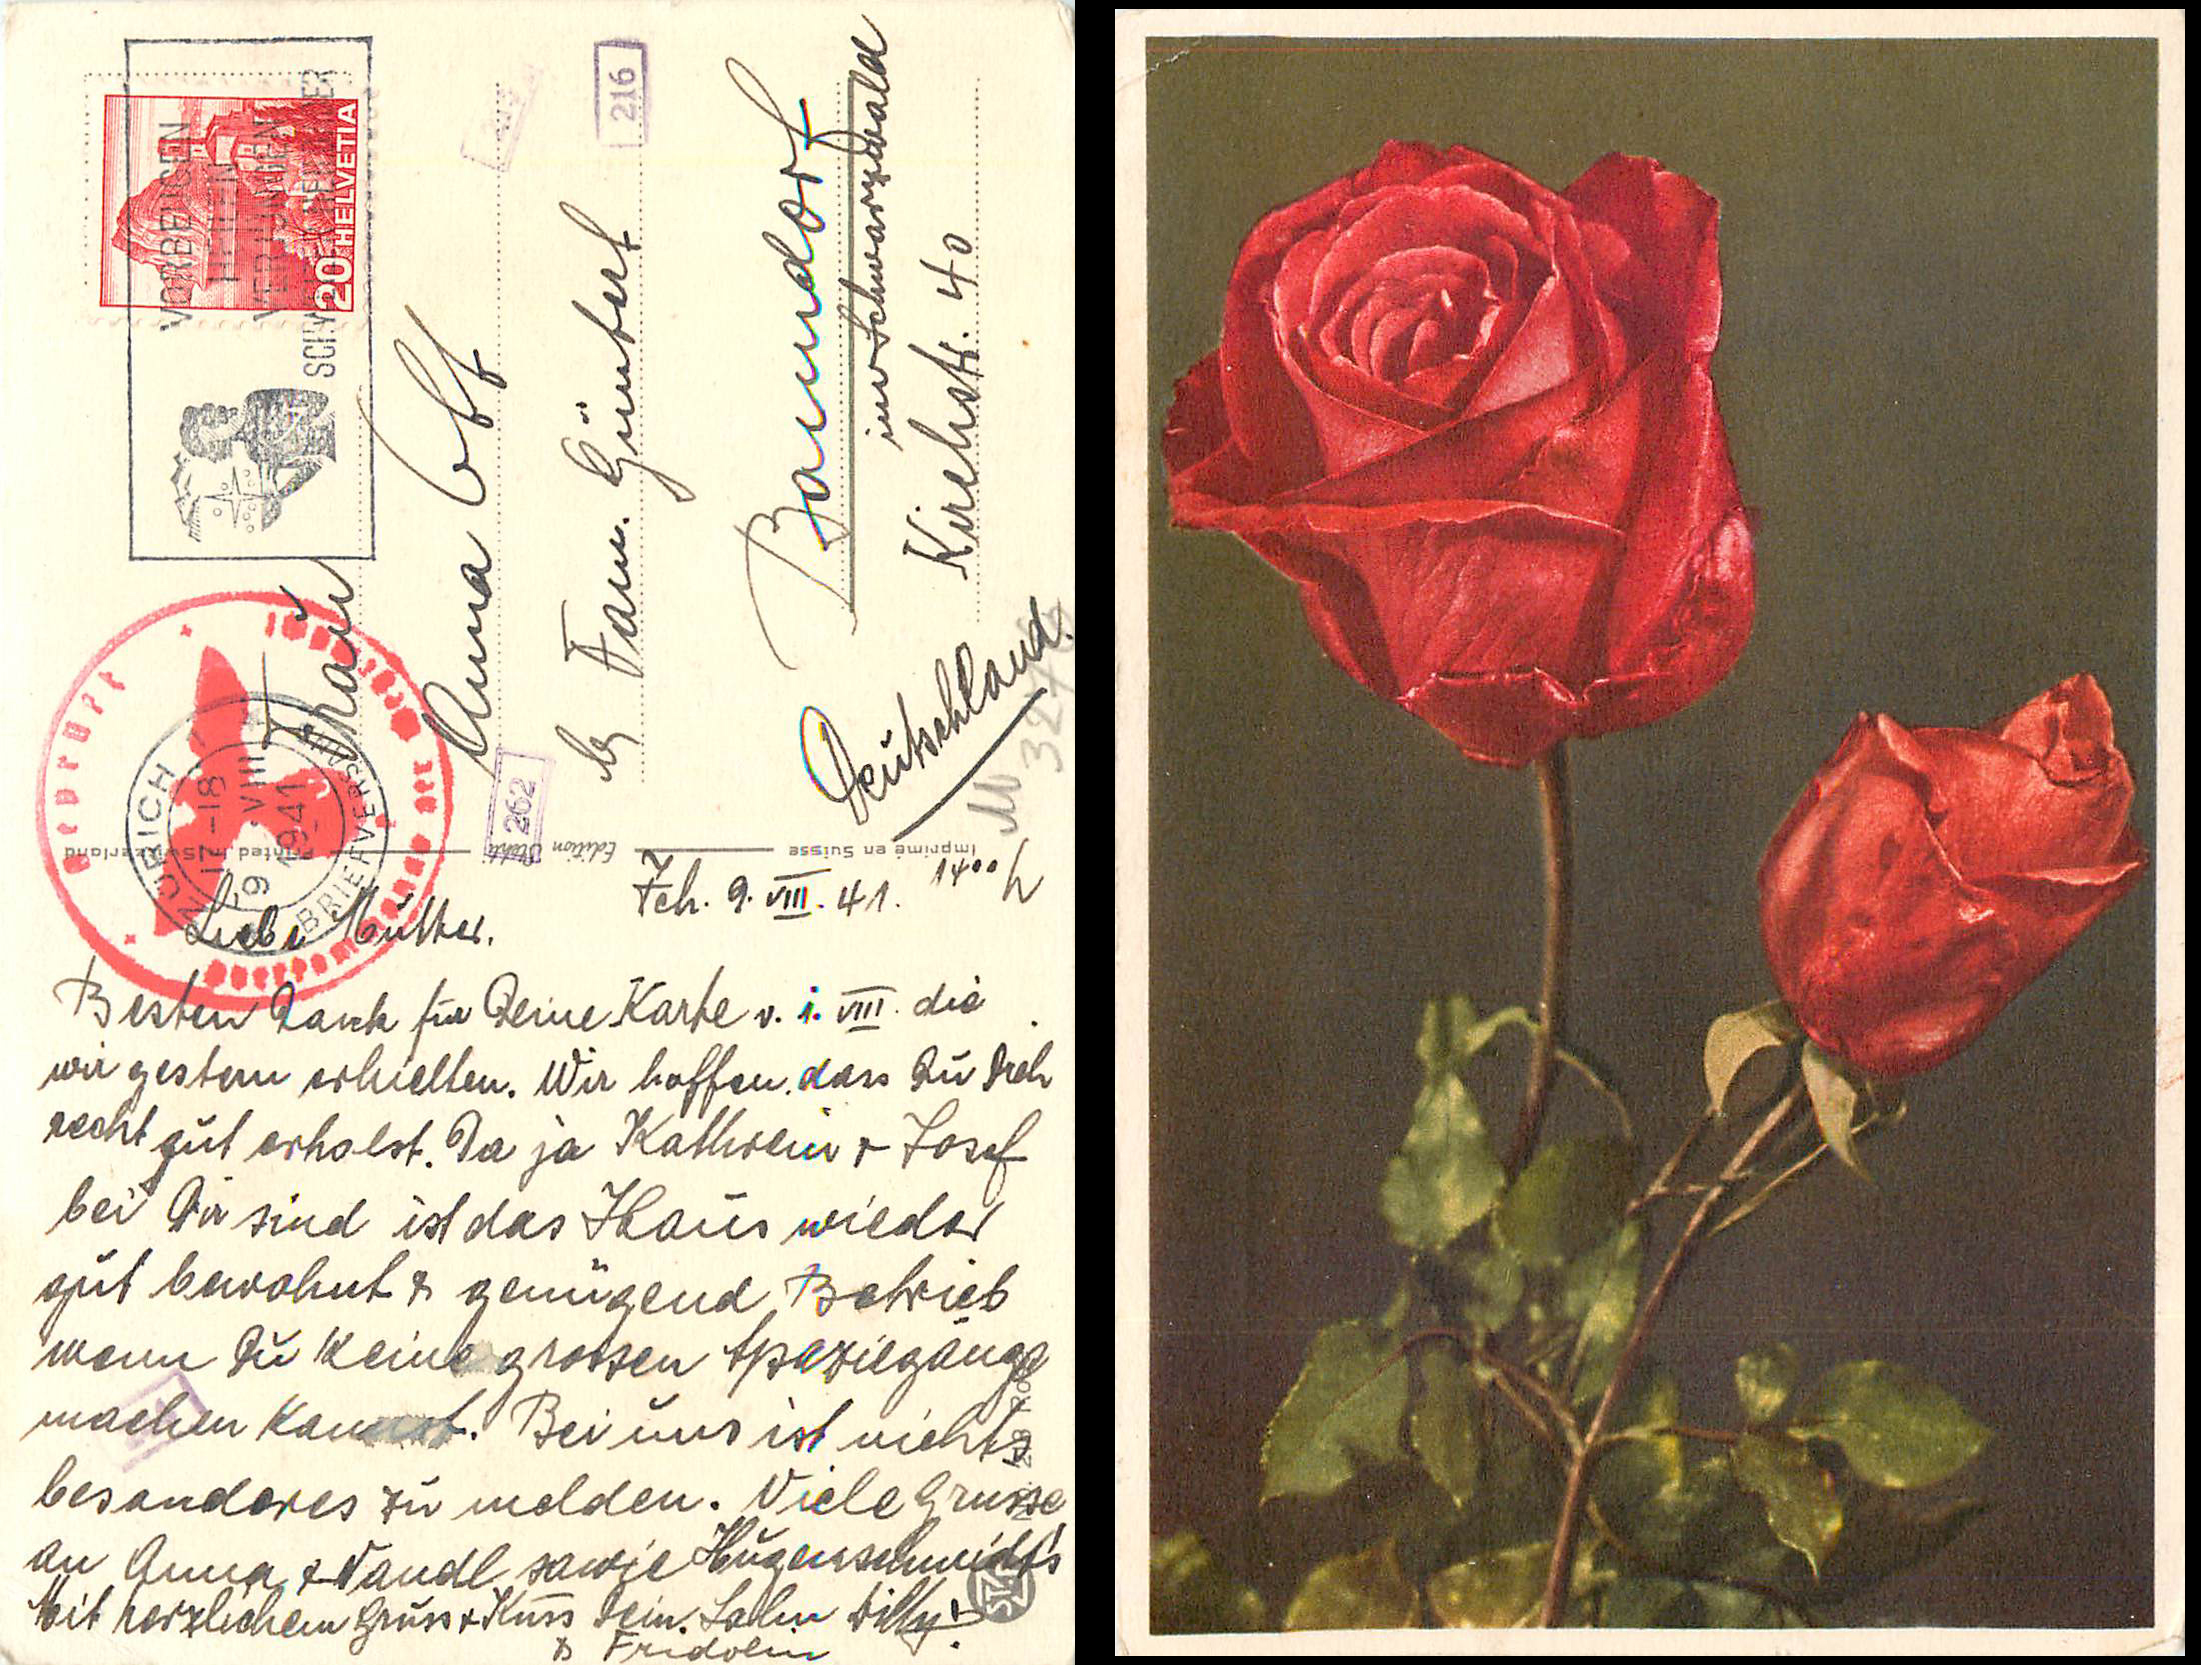 VORBEUGEN
HEILEN
VERJÜNGEN
20 HELVETIA
216
262
Geprüft
ZÜRICH
17-18
9.VIII
1941
BRIEFVERSAND
Frau
Anna Ott
b/ Fam. Güntert
Bonndorf
im Schwarzwald
Kirchstr. 40
Deutschland.
Printed in Switzerland
Edition Stehli
Imprimé en Suisse
Zch. 9. VIII. 41. 14⁰⁰ h
Liebe Mutter.
Besten Dank für Deine Karte v. 1. VIII. die
wir gestern erhielten. Wir hoffen, dass Du Dich
recht gut erholst. Da ja Kathrein + Josef
bei Dir sind ist das Haus wieder
gut bewohnt & genügend Betrieb
wenn Du keine grossen Spaziegänge
machen kannst. Bei uns ist nichts
besonderes zu melden. Viele Grüsse
an Anna & Nandl sowie Hugenschmidt's
Mit herzlichem Gruss + Kuss Dein Sohn Willy.
& Fridolin